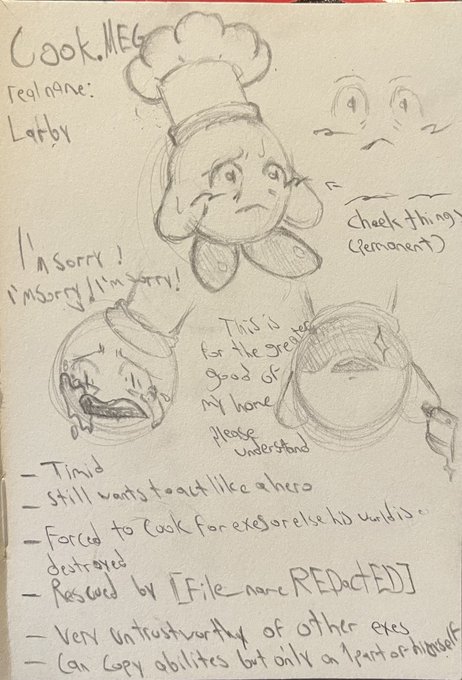 Cook.MEG
real name:
Larby
cheek things
(Permanent)
I'm sorry!
I'm sorry! I'm sorry!
This is
for the greater
good of
my home
please
understand
- Timid
- still wants to act like a hero
- Forced to Cook for exes or else his world is
destroyed
- Rescued by [File_name REDACTED]
- Very untrustworthy of other exes
- Can copy abilites but only on 1 part of himself